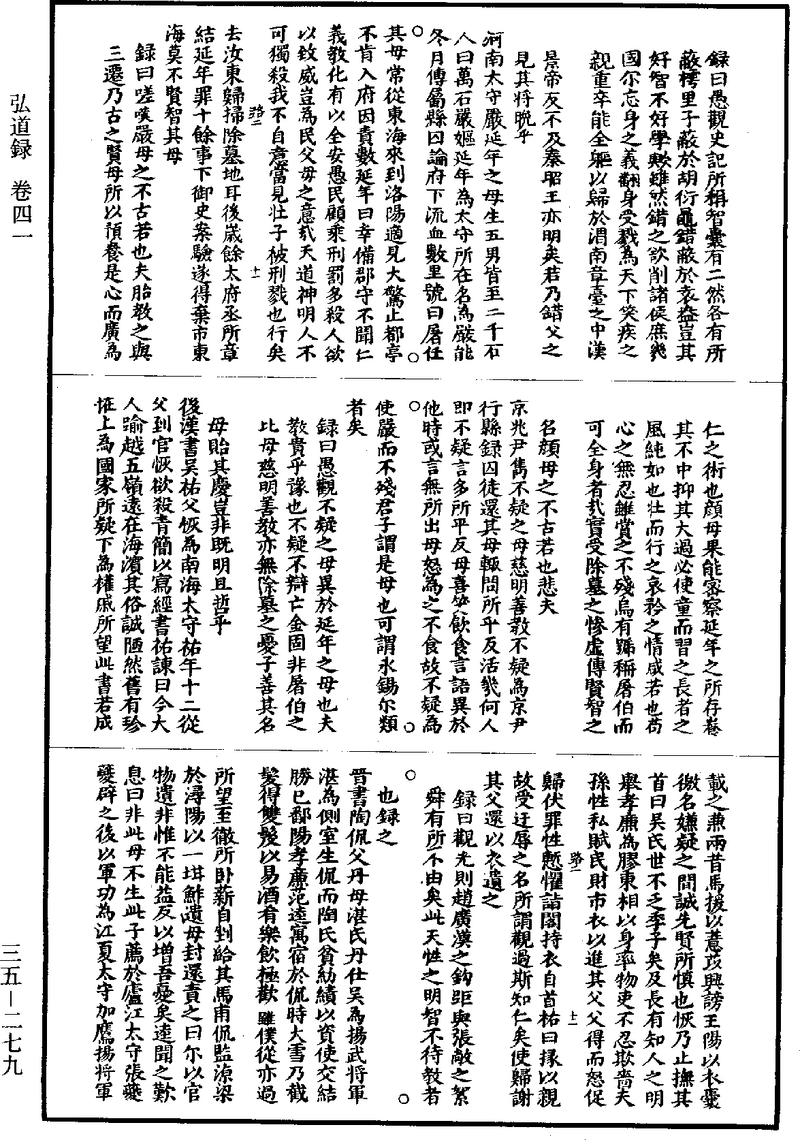 弘道録　卷四一
三五—二七九
録曰愚觀史記所稱智囊有二然各有所
蔽樗里子蔽於胡衍鼂錯蔽於袁盎豈其
好智不好學歟雖然錯之欲削諸侯庶幾
國尔忘身之義翻身受戮為天下笑疾之
親重卒能全軀以歸於渭南章臺之中漢
景帝反不及秦昭王亦明矣若乃錯父之
見其將晩乎
河南太守嚴延年之母生五男皆至二千石
人曰萬石嚴嫗延年為太守所在名為嚴能
冬月傳屬縣囚論府下流血數里號曰屠伯
其母常從東海來到洛陽適見大驚止都亭
不肯入府因責數延年曰幸備郡守不聞仁
義敎化有以全安愚民顧乘刑罰多殺人欲
以致威豈為民父母之意哉天道神明人不
可獨殺我不自意當見壮子被刑戮也行矣
路二
十一
去汝東歸掃除墓地耳後歲餘太府丞所章
結延年罪十餘事下御史案驗遂得棄市東
海莫不賢智其母
録曰嗟嘆嚴母之不古若也夫胎敎之與
三遷乃古之賢母所以預養是心而廣為
仁之術也顔母果能密察延年之所存養
其不中抑其大過必使童而習之長者之
風純如也壮而行之哀矜之情咸若也苟
心之無忍雖賞之不殘烏有號稱屠伯而
可全身者哉實受除墓之慘虚傳賢智之
名顔母之不古若也悲夫
京兆尹雋不疑之母慈明善敎不疑為京尹
行縣録囚徒還其母輒問所平反活幾何人
即不疑言多所平反母喜笑飲食言語異於
他時或言無所出母怒為之不食故不疑為
使嚴而不殘君子謂是母也可謂永錫尔類
者矣
録曰愚觀不疑之母異於延年之母也夫
敎貴乎豫也不疑不辯亡金固非屠伯之
比母慈明善敎亦無除墓之憂子善其名
母貽其慶豈非既明且哲乎
後漢書吳祐父恢為南海太守祐年十二從
父到官恢欲殺青簡以寫經書祐諫曰今大
人踰越五嶺遠在海濱其俗誠陋然舊有珍
恠上為國家所疑下為權戚所望此書若成
載之兼兩昔馬援以薏苡興謗王陽以衣囊
徼名嫌疑之間誠先賢所慎也恢乃止撫其
首曰吳氏世不乏季子矣及長有知人之明
舉孝廉為膠東相以身率物吏不忍欺嗇夫
孫性私賦民財市衣以進其父父得而怒促
路二
十二
歸伏罪性慙懼詣閤持衣自首祐曰掾以親
故受汙辱之名所謂觀過斯知仁矣使歸謝
其父還以衣遺之
録曰觀光則趙廣漢之鈎距與張敞之絮
舜有所不由矣此天性之明智不待敎者
也録之
晉書陶侃父丹母湛氏丹仕吳為揚武將軍
湛為側室生侃而陶氏貧紡績以資使交結
勝已鄱陽孝廉范逵寓宿於侃時大雪乃截
髪得雙髲以易酒肴樂飲極歡雖僕從亦過
所望至徹所卧薪自剉給其馬甫侃監漁梁
於潯陽以一坩鮓遺母封還責之曰尔以官
物遺非惟不能益反以增吾憂矣逵聞之歎
息曰非此母不生此子薦於廬江太守張夔
夔辟之後以軍功為江夏太守加鷹揚將軍